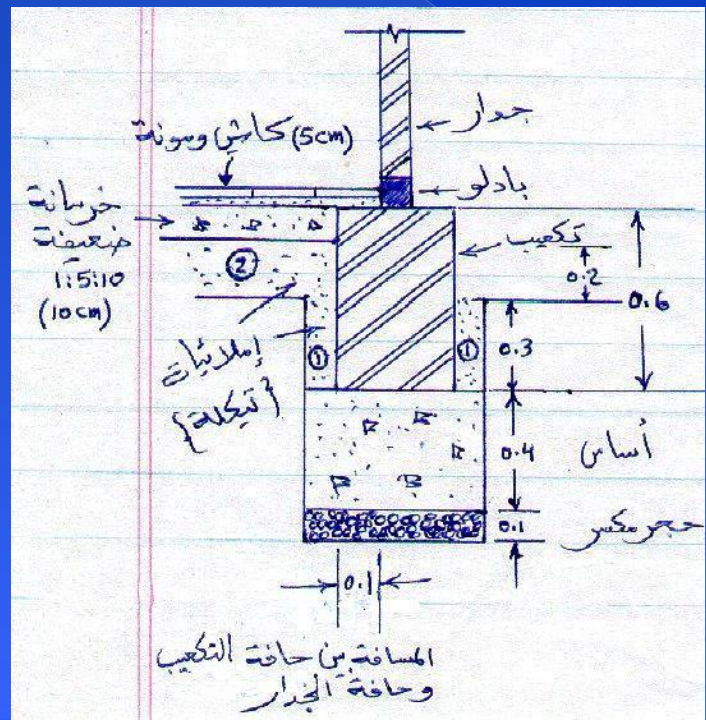 جدار
كاشي ومونة (5cm)
بادلو
خرسانة
ضعيفة
1:5:10
(10cm)
تكعيب
0.2
0.6
②
①
①
0.3
إملائيات
{تيكلة}
0.4
أساس
0.1
حجر مكسر
0.1
المسافة بين حافة التكعيب
وحافة الجدار